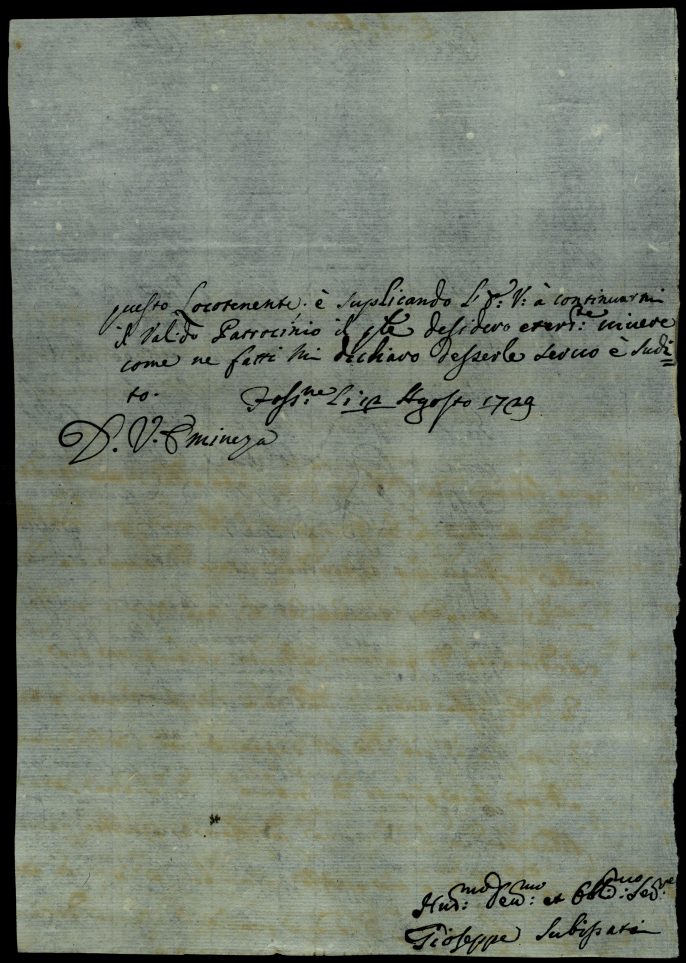 questo Locotenente; è suplicando L' E: V: à continuarmi
il Valido Patrocinio il qle desidero eter:te vivere
come ne fatti Mi dichiaro desserle servo è sudi=
to.
Foss:ne Li 12 Agosto 1729
D. V. Emineza
Hum:mo Deu:mo et Obb:mo Ser:re
Gioseppe Subissati